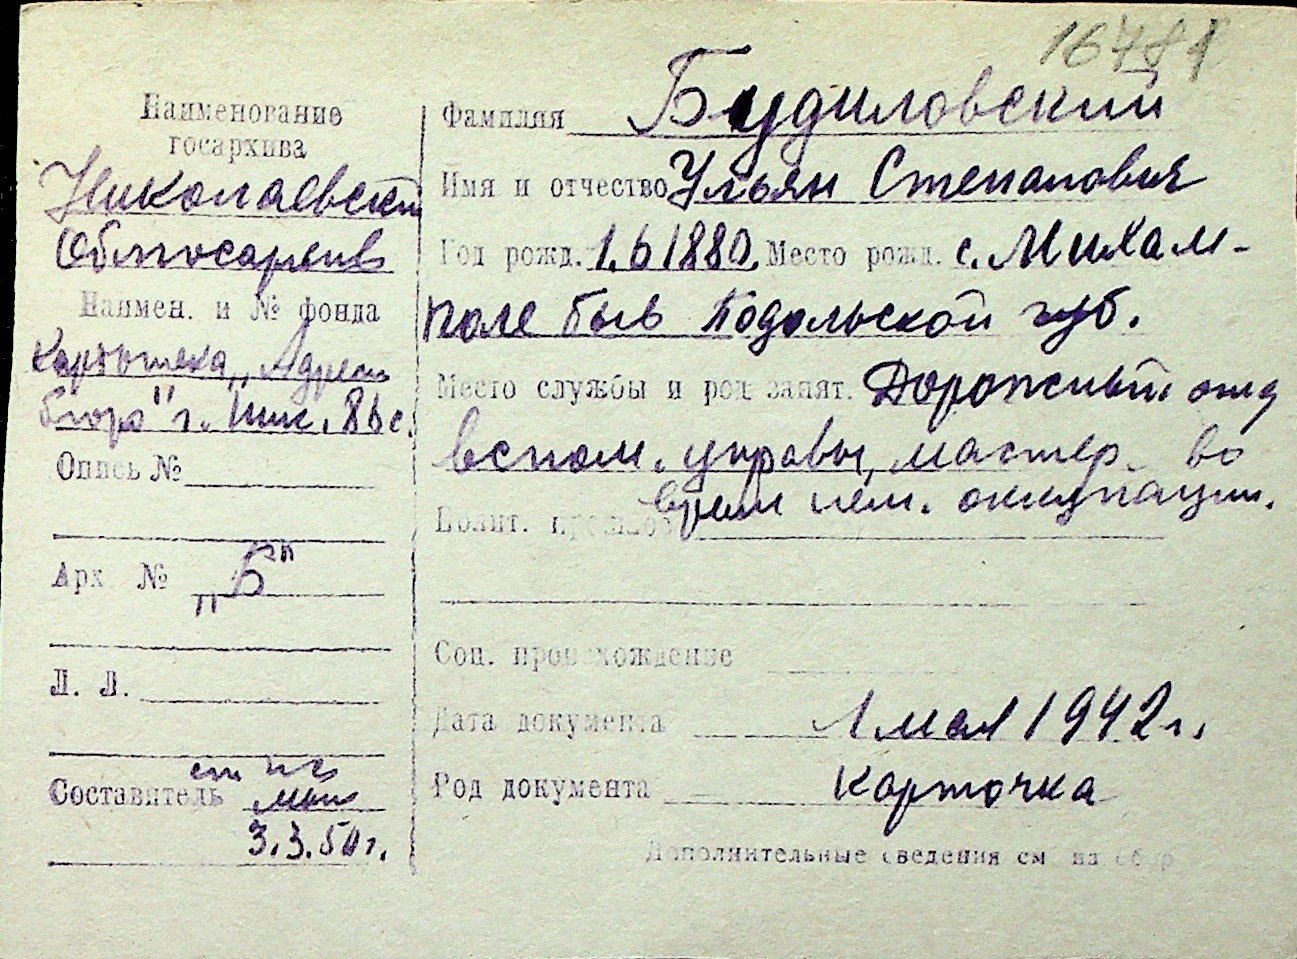 Наименование
госархива
Николаевский
Облгосархив
Наимен. и № фонда
Картотека „Адресн.
бюро" г. Ник.
Опись №
Арх. № „Б"
Л. Л.
Составитель
3.3.50 г.
Фамилия Будиловский
Имя и отчество Ульян Степанович
Год рожд. 1.6 1880. Место рожд. с. Михал-
поле быв Подольской губ.
Место службы и род занят. Дорожный отд
вспом. управы, мастер. во
время нем. оккупации.
Полит. прошлое
Соц. происхождение
Дата документа 1 мая 1942 г.
Род документа карточка
Дополнительные сведения см. на обор